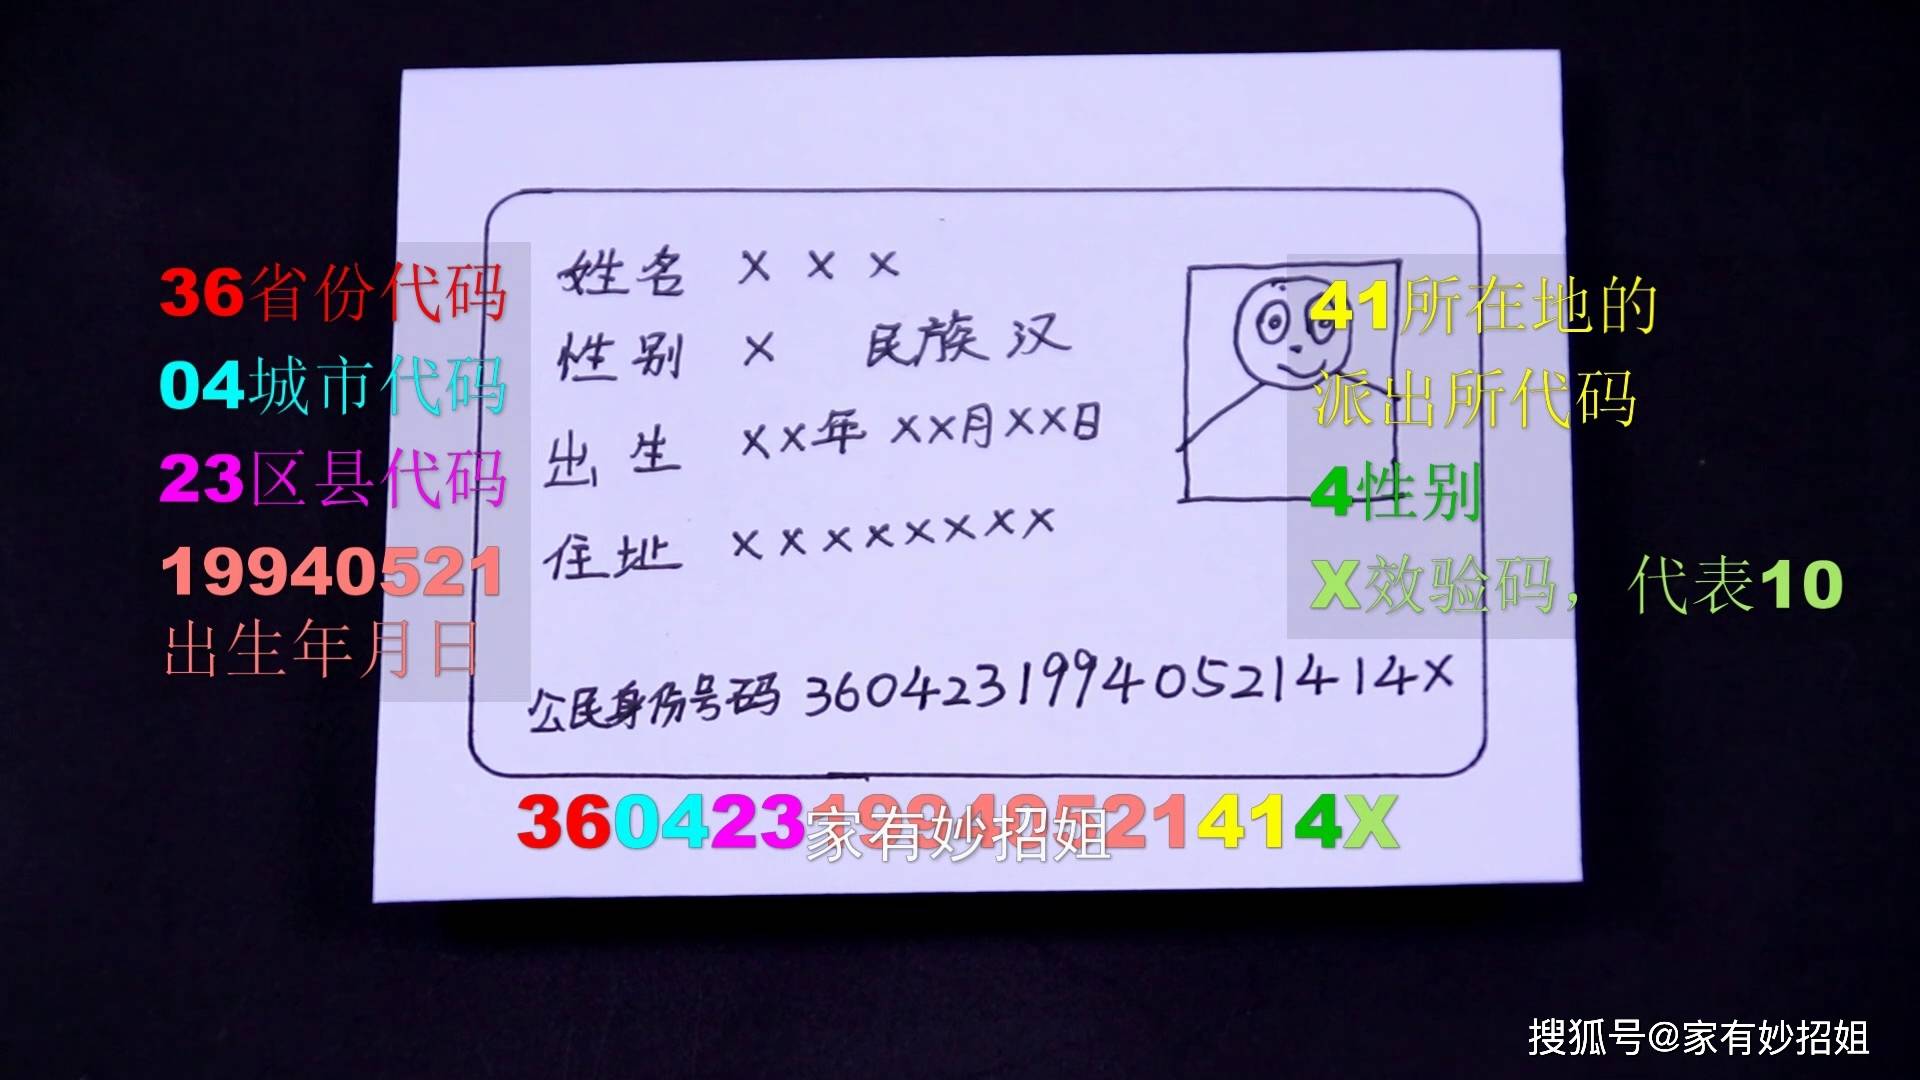 36省份代码
04城市代码
23区县代码
19940521
出生年月日
姓名 X X X
性别 X 民族 汉
出生 XX年 XX月XX日
住址 XXXXXXXX
公民身份号码 36042319940521414X
41所在地的
派出所代码
4性别
X效验码，代表10
36042319940521414X
家有妙招姐
搜狐号@家有妙招姐